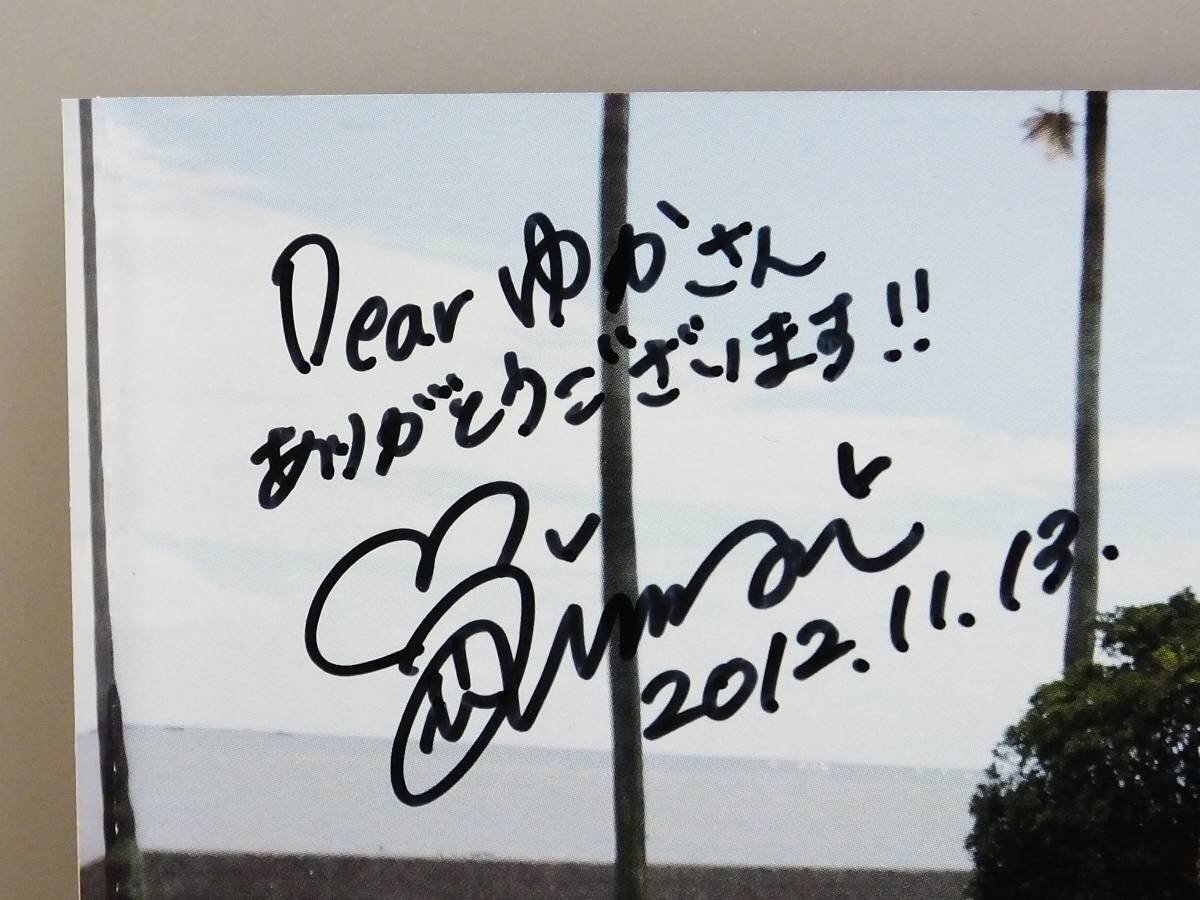 Dear ゆかさん
ありがとうございます!!
2012.11.13.